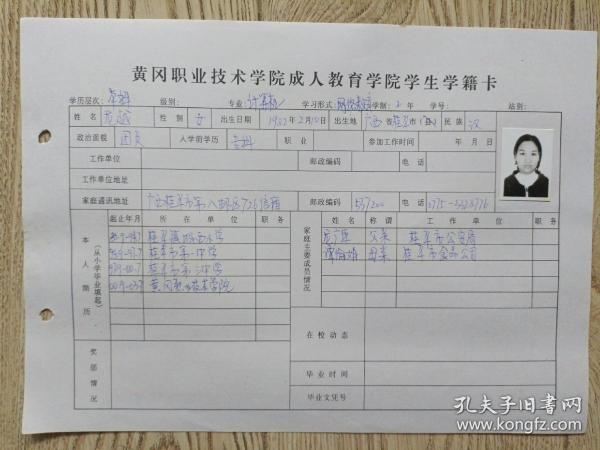 黄冈职业技术学院成人教育学院学生学籍卡
学历层次: 专科 级别: 专业: 计算机 学习形式: 网络教育 学制: 2 年 学号: 站别:
姓名 性别 女 出生日期 1982年2月10日 出生地 广西省桂平市(县) 民族 汉
政治面貌 团员 入学前学历 专科 职业 参加工作时间 年 月 日
工作单位 邮政编码 电话
工作单位地址
家庭通讯地址 广西桂平市 邮政编码 537200 电话
本人简历
(从小学毕业填起)
起止年月 所在单位 职务
桂平 小学
桂平市第一中学
桂平市第 中学
黄冈职业技术学院
家庭主要成员情况
姓名 称谓 工作单位 职务
父亲 桂平市公安局
母亲 桂平市食品公司
在校动态
奖惩情况
毕业时间
毕业文凭号
孔夫子旧书网
www.kongfz.com